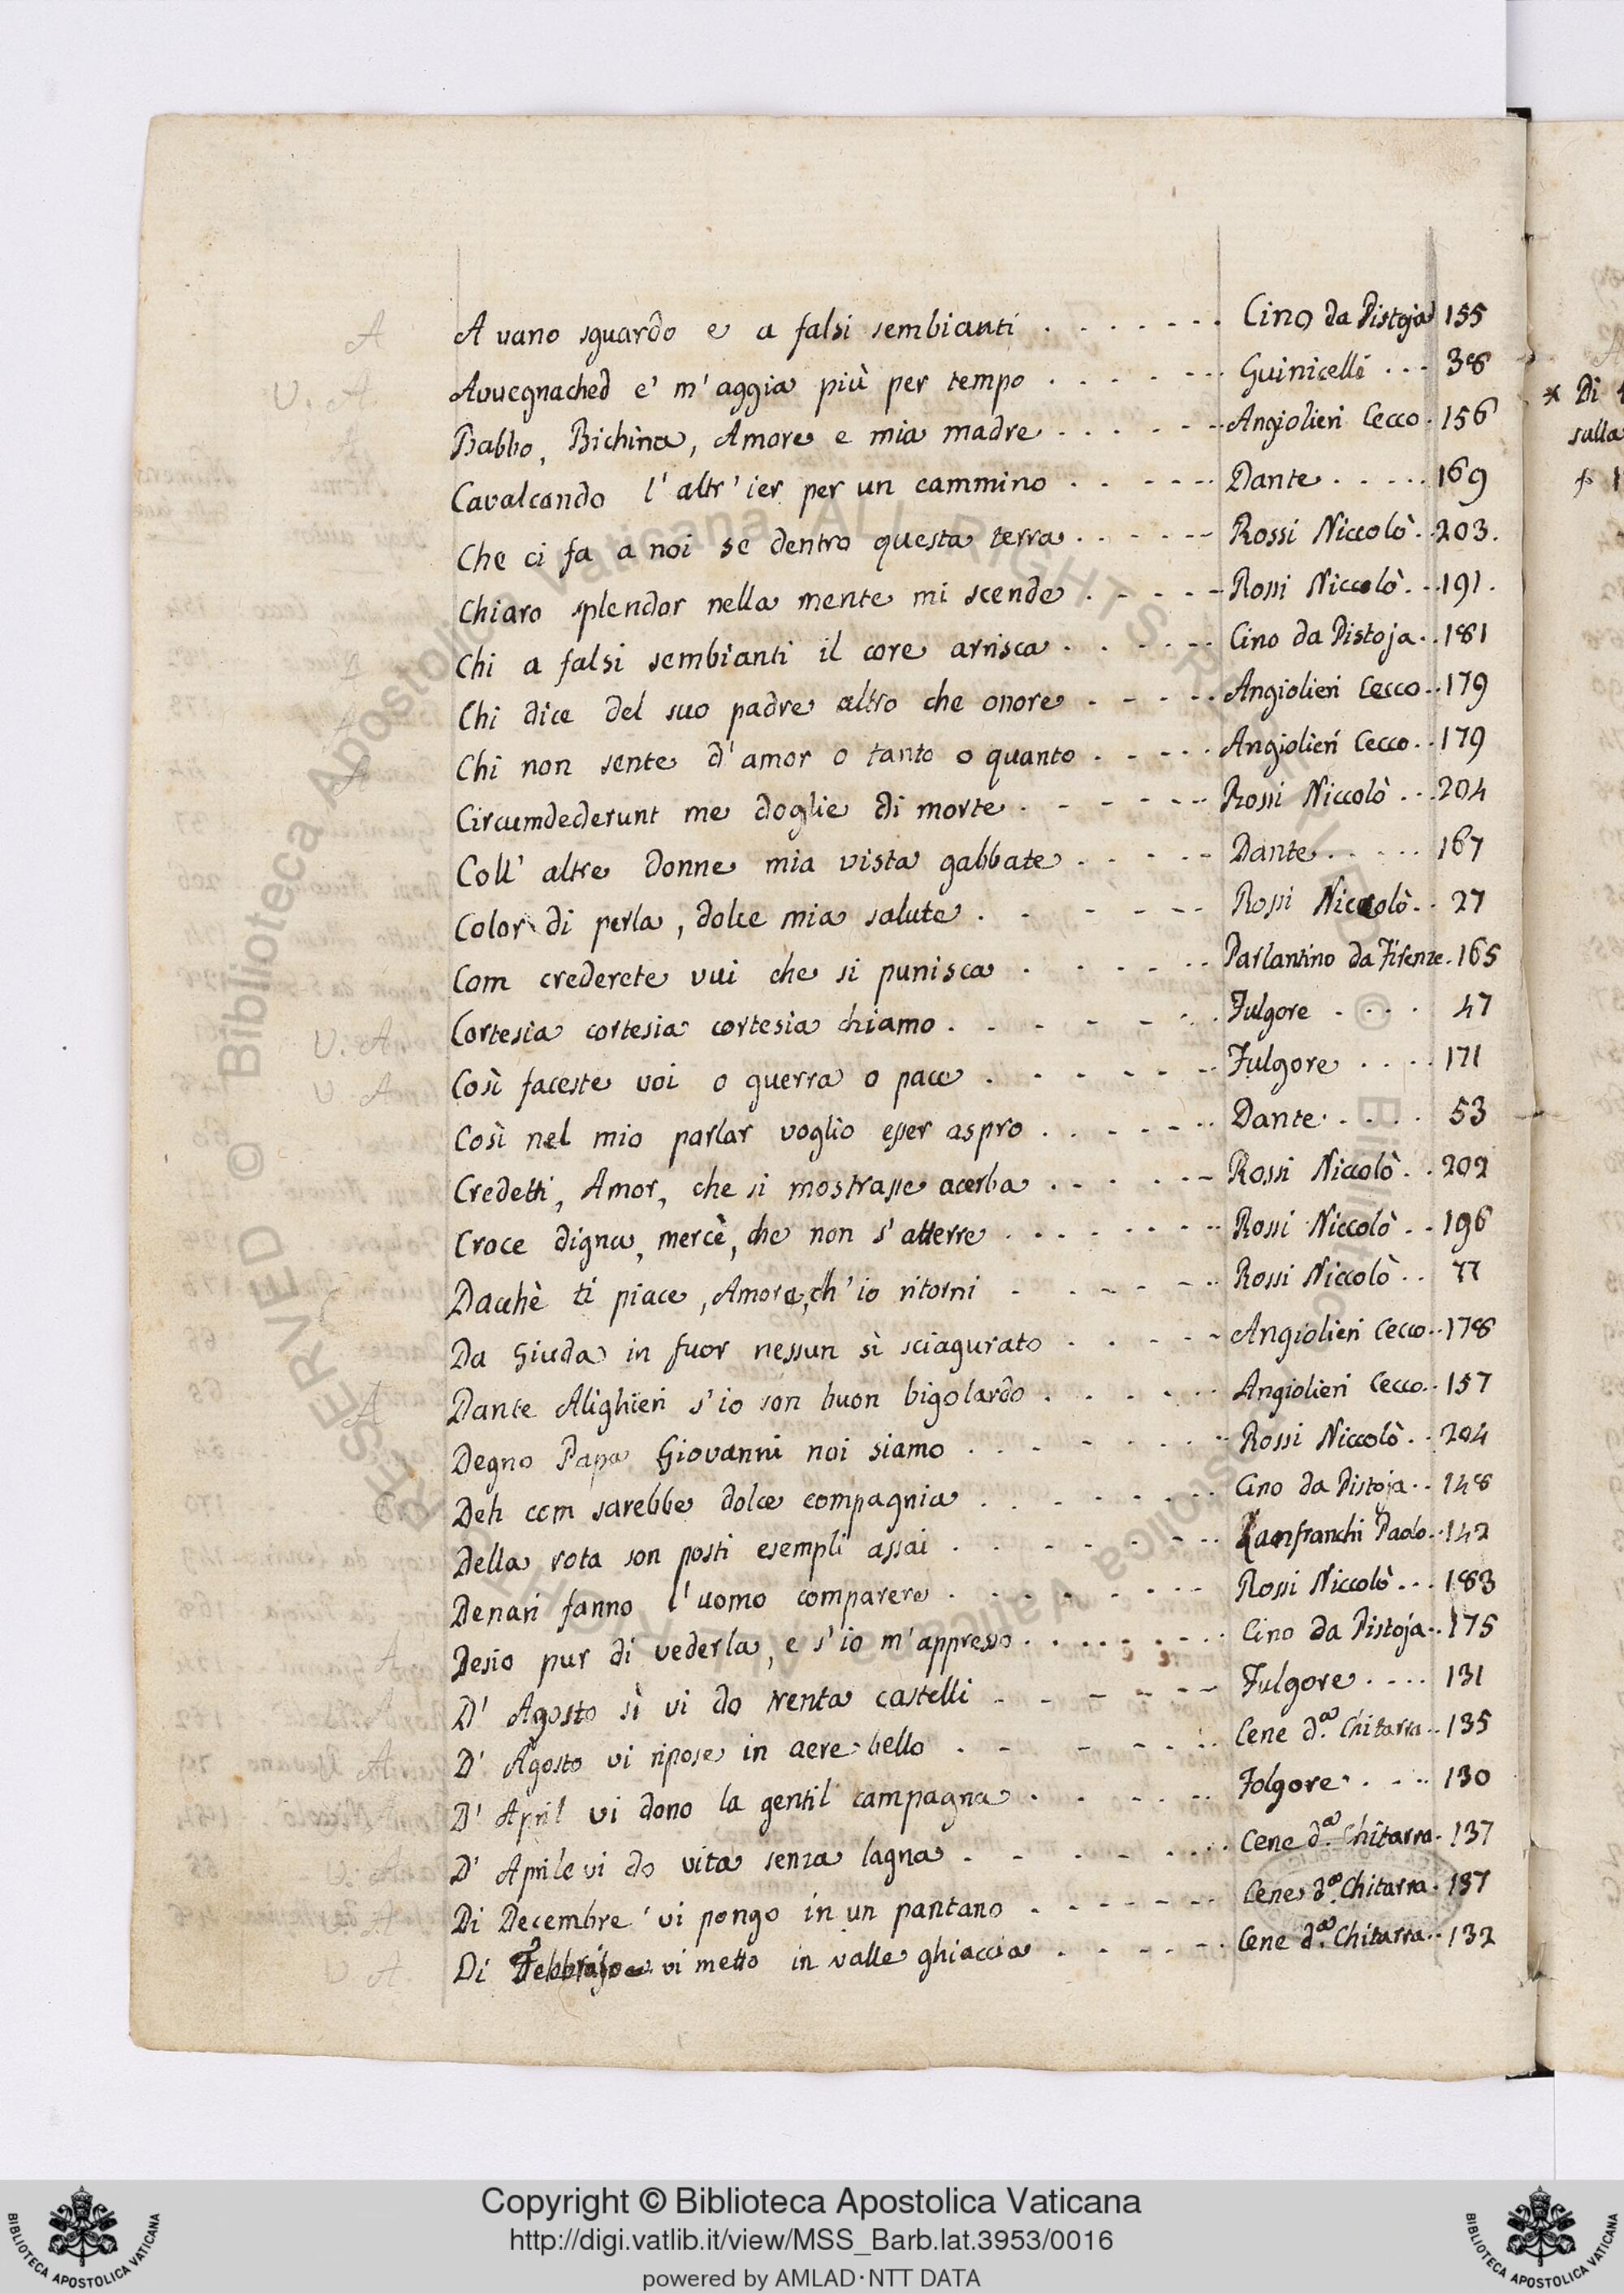 A A vano sguardo e a falsi sembianti . . . . . . . Cino da Pistoja 155
V. A. Avvegnached e' m'aggia più per tempo . . . . . . . Guinicelli . . . 38
Babbo, Bichina, Amore e mia madre . . . . . . . Angiolieri Cecco . 156
Cavalcando l'altr'ier per un cammino . . . . . . Dante . . . . . 169
Che ci fa a noi se dentro questa terra . . . . . . Rossi Niccolò . . 203.
Chiaro splendor nella mente mi scende . . . . . Rossi Niccolò . . 191.
Chi a falsi sembianti il core arrisca . . . . . . Cino da Pistoja . . 181
Chi dice del suo padre altro che onore . . . . . Angiolieri Cecco . . 179
Chi non sente d'amor o tanto o quanto . . . . . Angiolieri Cecco . . 179
Circumdederunt me doglie di morte . . . . . . Rossi Niccolò . . . 204
Coll'altre Donne mia vista gabbate . . . . . Dante . . . . . 167
Color di perla, dolce mia salute . . . . . . Rossi Niccolò . . 27
Com crederete vui che si punisca . . . . . . Parlantino da Firenze . 165
V. A Cortesia cortesia cortesia chiamo . . . . . . . Fulgore . . . . 47
V A Così faceste voi o guerra o pace . . . . . . . Fulgore . . . . 171
Così nel mio parlar voglio esser aspro . . . . . . . Dante . . . . . 53
Credetti, Amor, che si mostrasse acerba . . . . . . Rossi Niccolò . . 202
Croce digna, mercè, che non s'atterre . . . . . . . . Rossi Niccolò . . 196
Dacchè ti piace, Amore, ch'io ritorni . . . . . . Rossi Niccolò . . 77
Da Giuda in fuor nessun sì sciagurato . . . . . Angiolieri Cecco . . 178
A Dante Alighieri s'io son buon bigolardo . . . . . . Angiolieri Cecco . . 157
Degno Papa Giovanni noi siamo . . . . . . . . Rossi Niccolò . . 204
Deh com sarebbe dolce compagnia . . . . . . . . Cino da Pistoja . . 148
Della rota son posti esempli assai . . . . . . . . Lanfranchi Paolo . . 142
Denari fanno l'uomo comparere . . . . . . . . Rossi Niccolò . . . 183
A Desio pur di vederla, e s'io m'appresso . . . . . . . . Cino da Pistoja . . 175
A D'Agosto sì vi do trenta castelli . . . . . . . Fulgore . . . . 131
A D'Agosto vi ripose in aere bello . . . . . . . Cene d.ª Chitarra . . 135
D'April vi dono la gentil campagna . . . . . . Folgore . . . . 130
V. A D'Aprile vi do vita senza lagna . . . . . . . Cene d.ª Chitarra . 137
V. A Di Decembre vi pongo in un pantano . . . . . . Cene d.ª Chitarra . 137
V A. Di Febbrajo vi metto in valle ghiaccia . . . . . . Cene d.ª Chitarra . . 132
* Di
sulla
Copyright © Biblioteca Apostolica Vaticana
http://digi.vatlib.it/view/MSS_Barb.lat.3953/0016
powered by AMLAD·NTT DATA
BIBLIOTECA APOSTOLICA VATICANA
BIBLIOTECA APOSTOLICA VATICANA